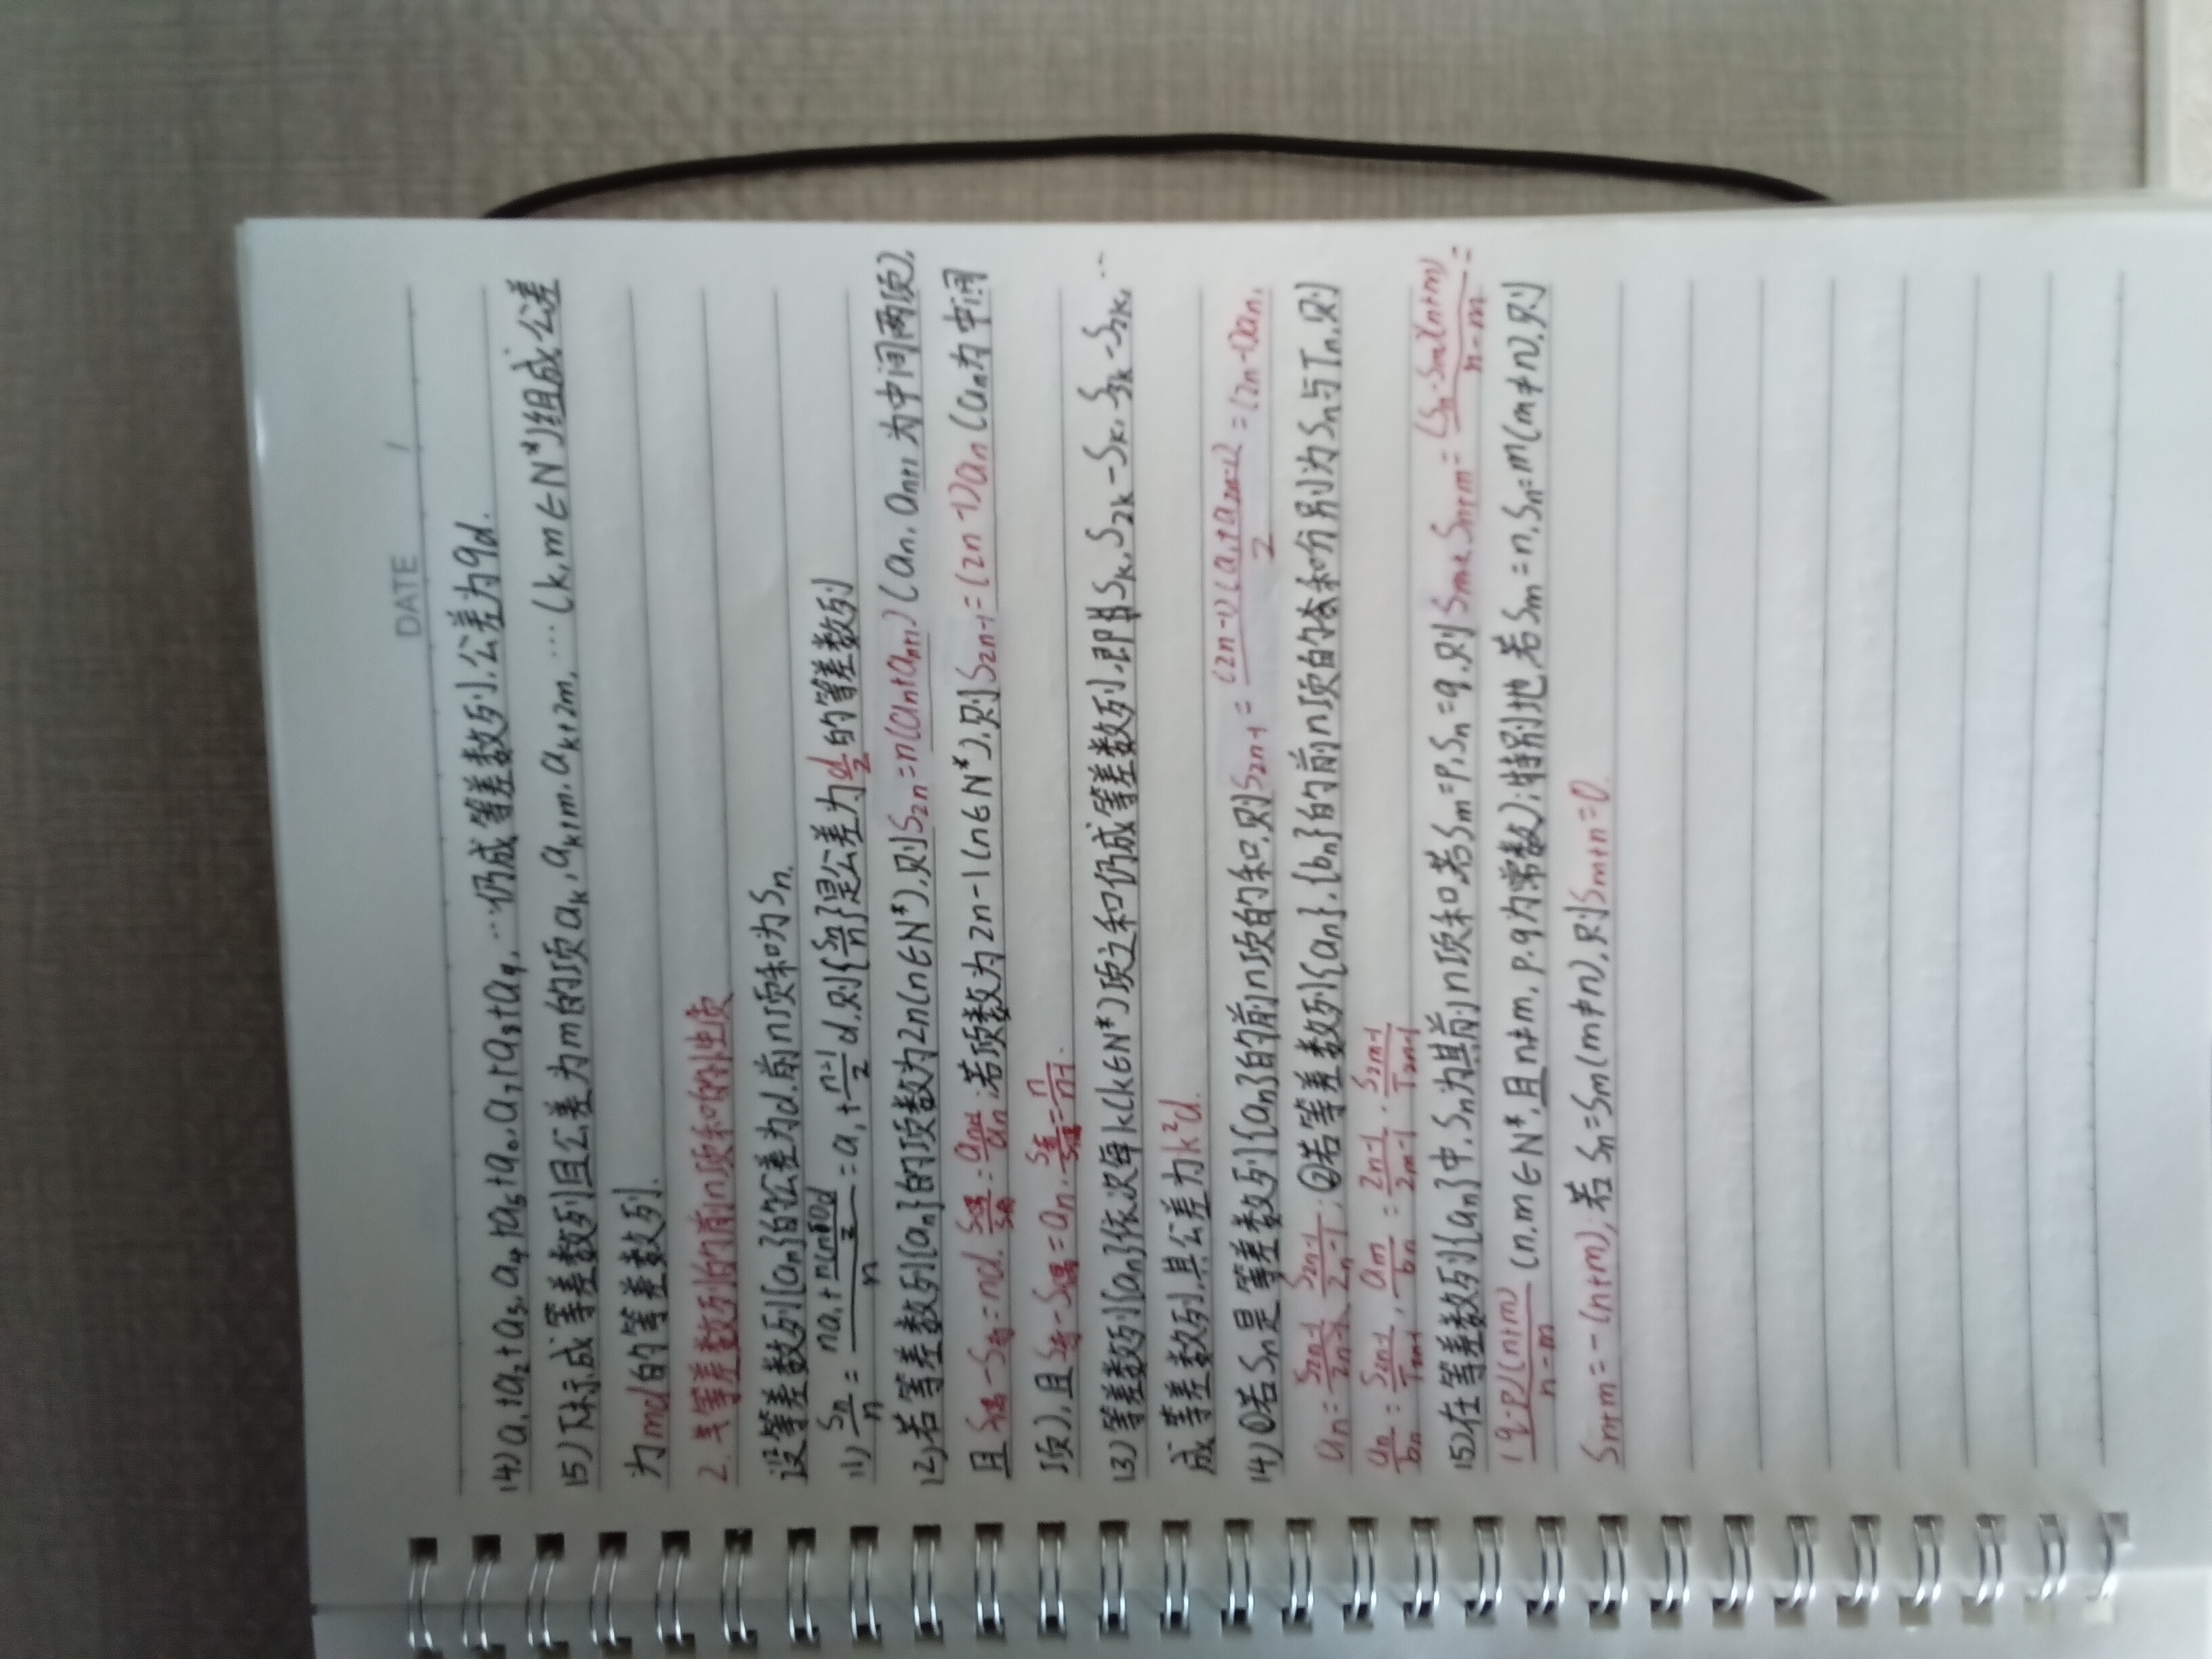 DATE /
(4) a₁+a₂+a₃, a₄+a₅+a₆, a₇+a₈+a₉, …仍成等差数列,公差为9d.
(5)下标成等差数列且公差为m的项aₖ, aₖ₊ₘ, aₖ₊₂ₘ, …(k,m∈N*)组成公差
为md的等差数列.
2. 等差数列的前n项和的性质
设等差数列{aₙ}的公差为d,前n项和为Sₙ.
(1) Sₙ/n = (na₁+n(n-1)d/2)/n = a₁+(n-1)/2 d,则{Sₙ/n}是公差为d/2的等差数列
(2)若等差数列{aₙ}的项数为2n(n∈N*),则S₂ₙ=n(aₙ+aₙ₊₁)(aₙ, aₙ₊₁为中间两项),
且S偶-S奇=nd, S偶/S奇=aₙ₊₁/aₙ;若项数为2n-1(n∈N*),则S₂ₙ₋₁=(2n-1)aₙ(aₙ为中间
项),且S奇-S偶=aₙ, S奇/S偶=n/n-1.
(3)等差数列{aₙ}依次每k(k∈N*)项之和仍成等差数列,即Sₖ, S₂ₖ-Sₖ, S₃ₖ-S₂ₖ, …
成等差数列,其公差为k²d.
(4)①若Sₙ是等差数列{aₙ}的前n项的和,则S₂ₙ₋₁=(2n-1)(a₁+a₂ₙ₋₁)/2=(2n-1)aₙ,
aₙ=S₂ₙ₋₁/2n-1;②若等差数列{aₙ},{bₙ}的前n项的和分别为Sₙ与Tₙ,则
aₙ/bₙ=S₂ₙ₋₁/T₂ₙ₋₁, aₘ/bₙ=2n-1/2m-1·S₂ₘ₋₁/T₂ₙ₋₁
(5)在等差数列{aₙ}中,Sₙ为其前n项和,若Sₘ=p, Sₙ=q,则Sₙ₊ₘ=(Sₙ-Sₘ)(n+m)/n-m=
(q-p)(n+m)/n-m (n,m∈N*,且n≠m, p,q为常数);特别地,若Sₘ=n, Sₙ=m(m≠n),则
Sₙ₊ₘ=-(n+m);若Sₙ=Sₘ(m≠n),则Sₘ₊ₙ=0